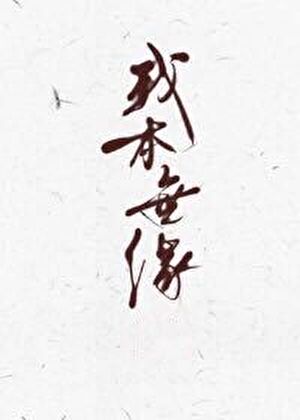 我本無緣